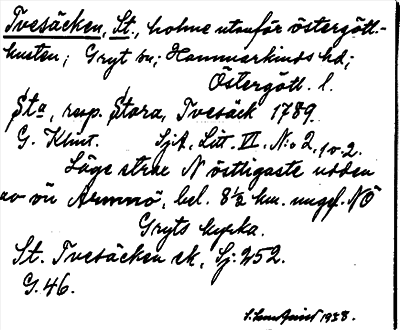 Tvesäcken, St., holme utanför östergötl.-
kusten; Gryt sn; Hammarkinds hd;
Östergötl. l.
Sta, resp. Stora, Tvesäck 1789.
G. Klint. SjA, Litt. VI. No 2, 1 o. 2.
Läge strax N östligaste udden
av ön Armnö, bel. 8½ km. ungef. NÖ
Gryts kyrka.
St. Tvesäcken ek, Sj: 252.
G. 46.
1938.